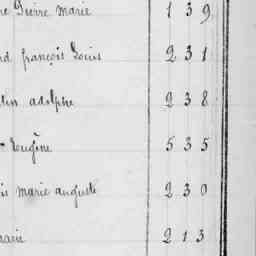 Pierre Marie 139
françois Louis 231
adolphe 238
Eugène 535
marie auguste 230
marie 213